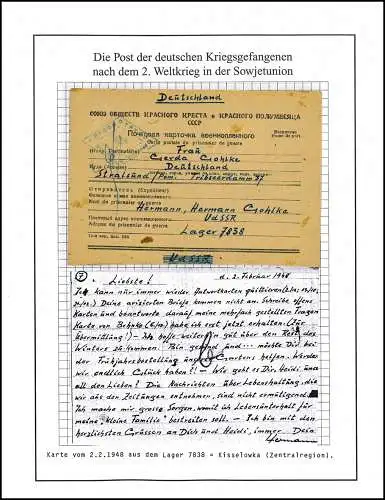 Die Post der deutschen Kriegsgefangenen
nach dem 2. Weltkrieg in der Sowjetunion
Deutschland
СОЮЗ ОБЩЕСТВ КРАСНОГО КРЕСТА и КРАСНОГО ПОЛУМЕСЯЦА
СССР
Почтовая карточка военнопленного
Carte postale du prisonnier de guerre
Кому (Destinataire) Frau
Gerda Gohlke
Куда (Adresse) Deutschland
Stralsund/Pom. Tribseerdamm
Отправитель (Expéditeur)
Фамилия и имя военнопленного
Nom du prisonnier de guerre
Hermann, Hermann Gohlke
Почтовый адрес военнопленного UdSSR
Adresse du prisonnier de guerre
Lager 7838
UdSSR
7
Liebste! d. 2. Februar 1948
Ich kann nur immer wieder Antwortkarten
Deine avisierten Briefe kommen nicht an. Schreibe offene
Karten und beantworte darauf meine mehrfach gestellten Fragen
Karte von habe ich erst jetzt erhalten. (Für
Übermittlung!) Ich hoffe weiter gut über den Rest des
Winters zu kommen. Bin gesund und möchte Dir bei
der Frühjahrsbestellung Gartens helfen. Werden
wir endlich Glück haben?! Wie geht es Dir, Heidi und
all den Lieben! Die Nachrichten über Lebenshaltung, die
wir aus den Zeitungen entnehmen, sind nicht ermutigend.
Ich mache mir grosse Sorgen, womit ich Lebensunterhalt für
meine "kleine Familie" bestreiten soll. Ich bin mit den
herzlichsten Grüssen an Dich und Heidi, immer Dein
Hermann
Karte vom 2.2.1948 aus dem Lager 7838 = Kisselowka (Zentralregion).